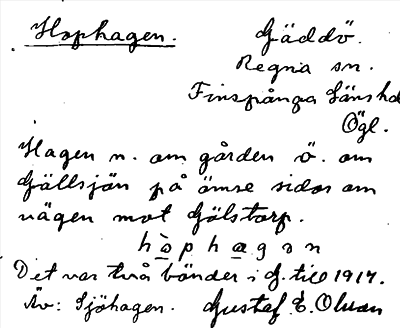 Hophagen. Gäddö.
Regna sn.
Finspånga länshd
Ögl.
Hagen n. om gården ö. om
Gällsjön på ömse sidor om
vägen mot Gölstorp.
hòphagən
Det var två bönder i G. till 1917.
Äv: Sjöhagen. Gustaf E. Olsson